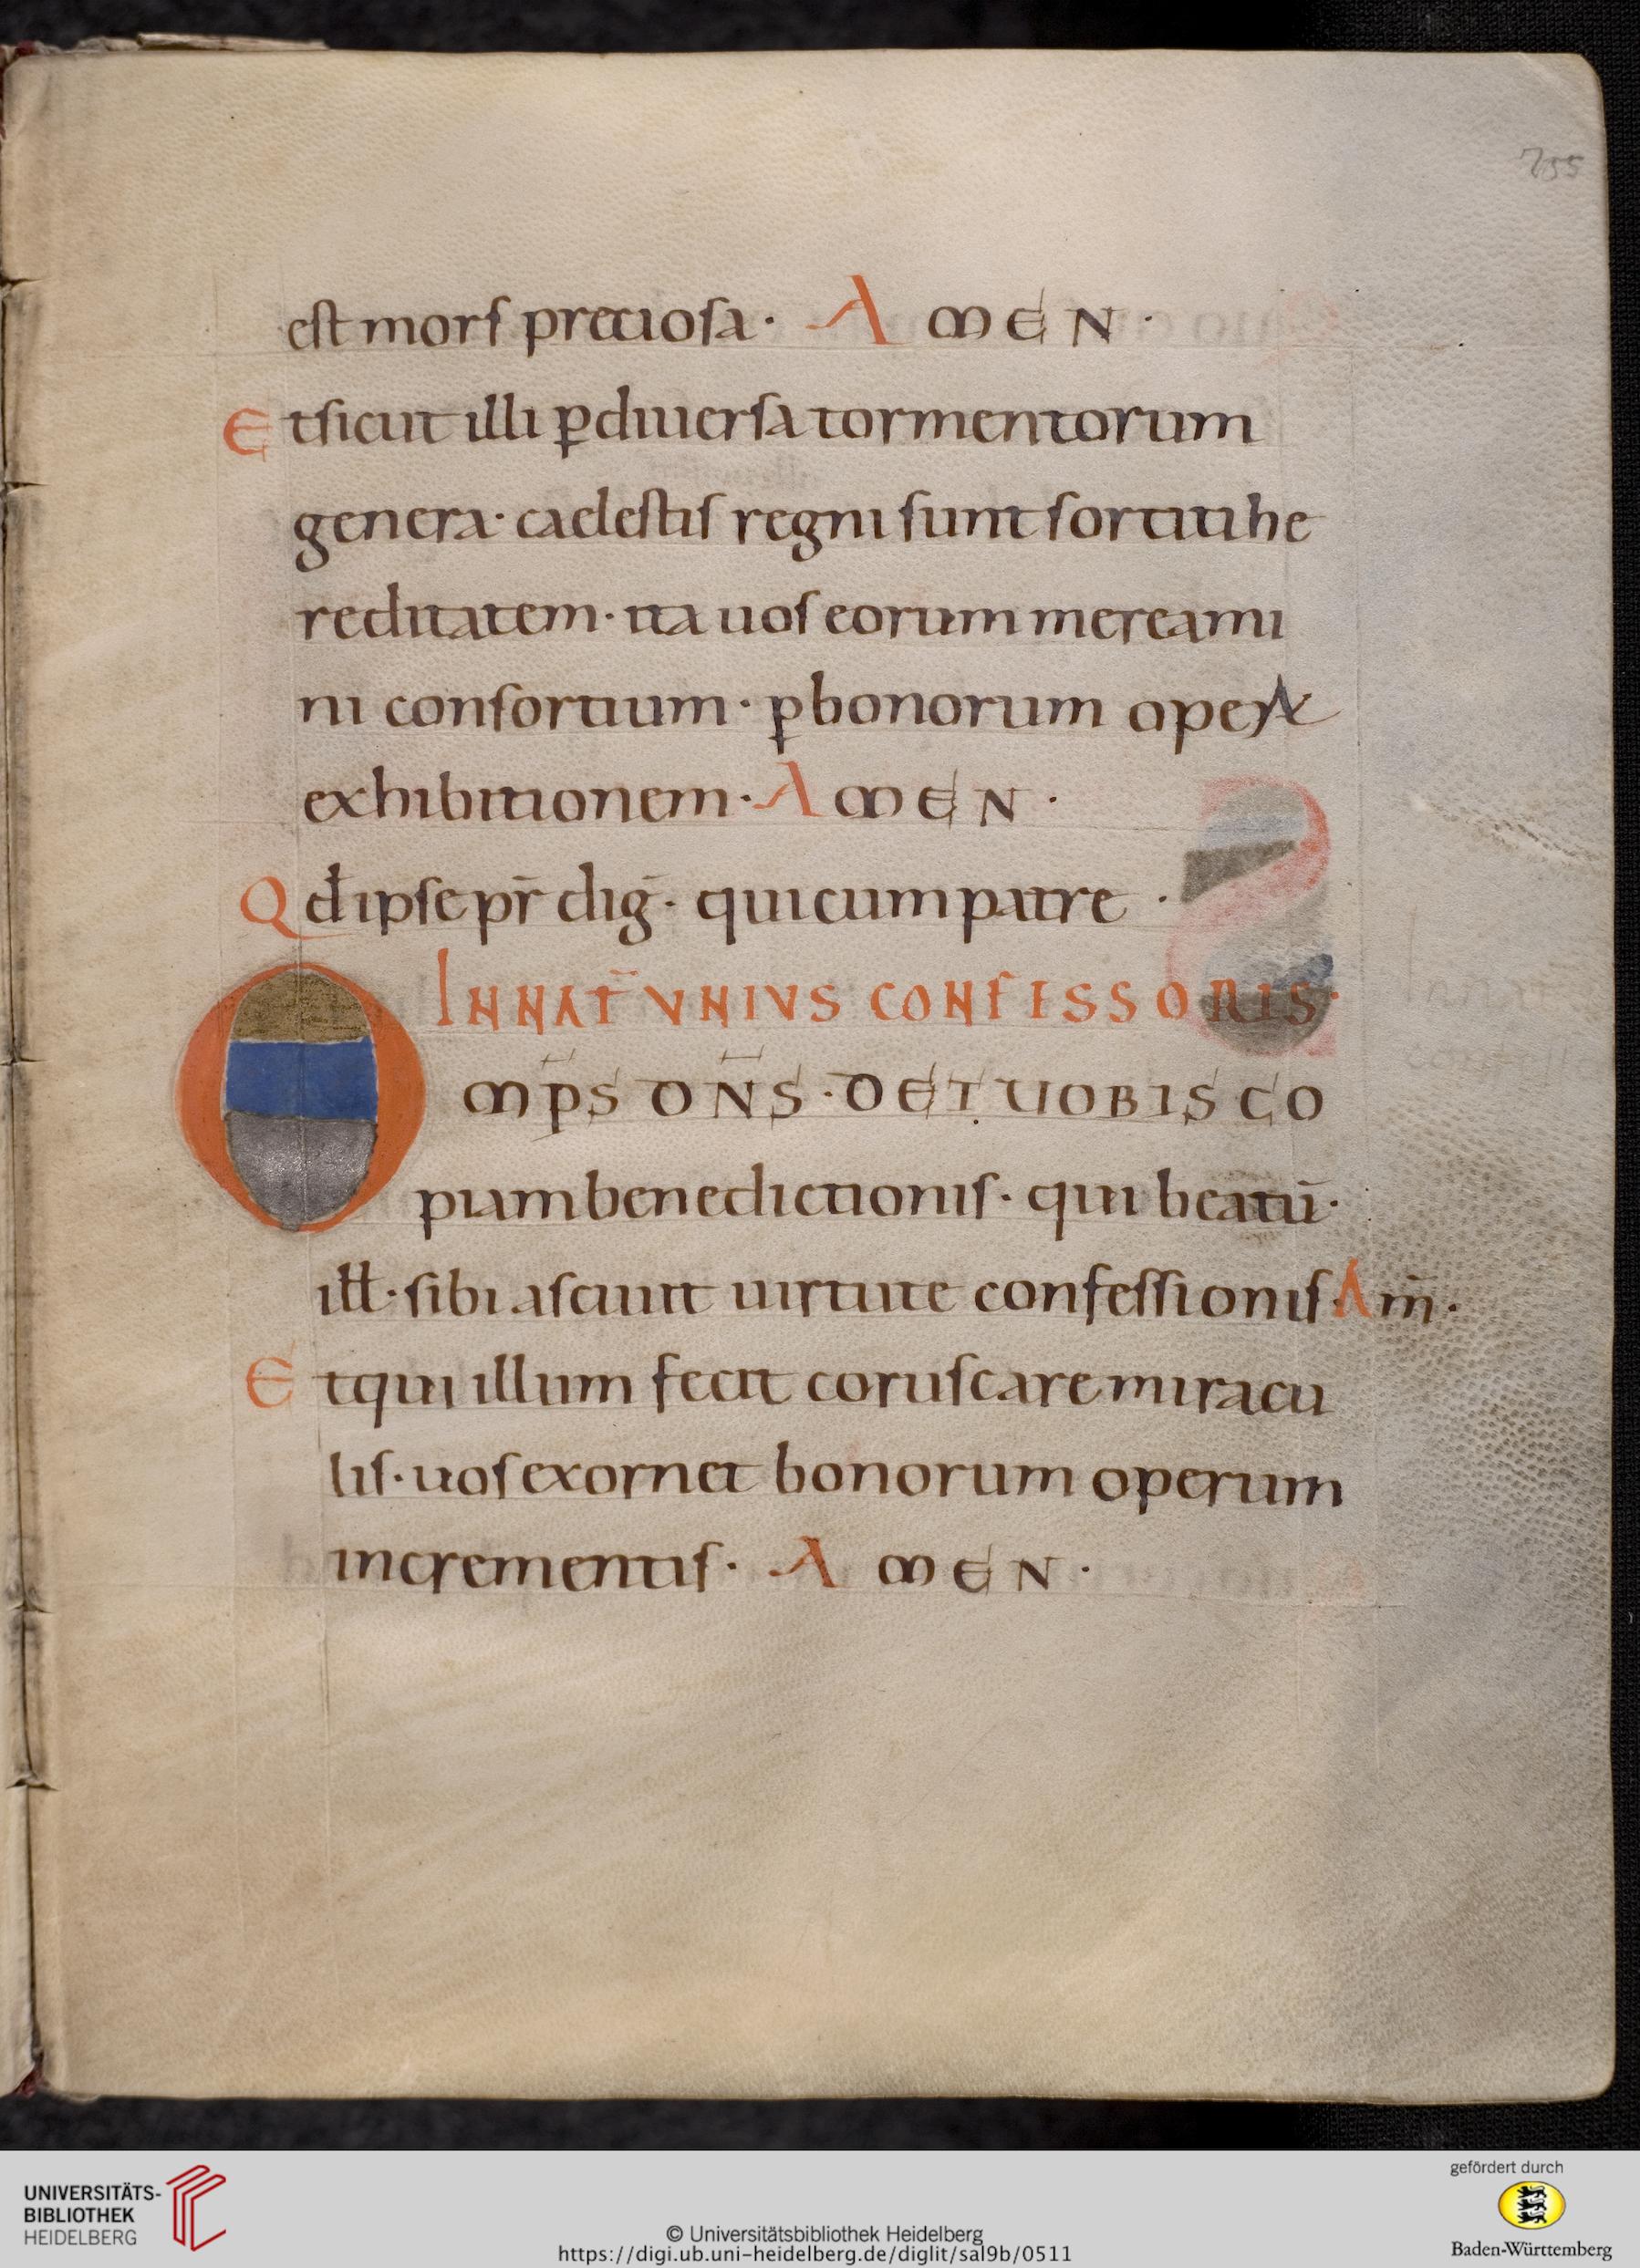 255
est mors preciosa · AMEN ·
Et sicut illi ꝑ diuersa tormentorum
genera · caelestis regni sunt sortiti he
reditatem · ita uos eorum mereami
ni consortium · ꝑ bonorum operꝝ
exhibitionem · AMEN ·
Qd̄ ipse pr̄ diḡ · qui cum patre ·
IN NAT̄ VNIVS CONFESSORIS ·
OMP̄S DN̄S · DET UOBIS CO
piam benedictionis · qui beatū ·
iłł · sibi asciuit uirtute confessionis · Am̄ ·
Et qui illum fecit coruscare miracu
lis · uos exornet bonorum operum
incrementis · AMEN ·
UNIVERSITÄTS-
BIBLIOTHEK
HEIDELBERG
© Universitätsbibliothek Heidelberg
https://digi.ub.uni-heidelberg.de/diglit/sal9b/0511
gefördert durch
Baden-Württemberg